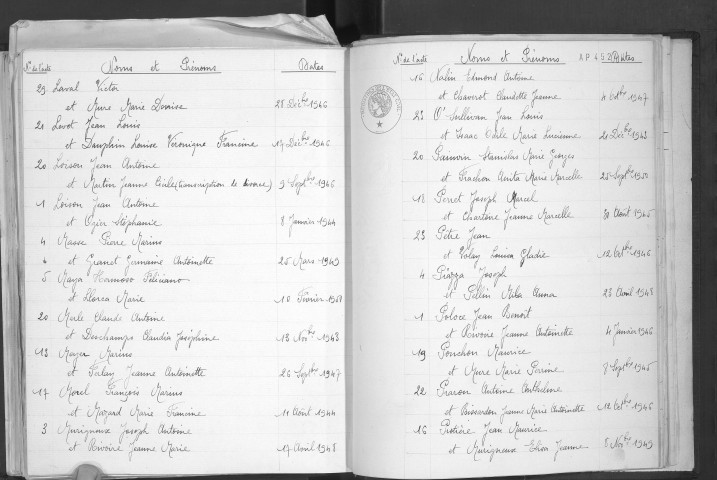 N° de l'acte Noms et Prénoms Dates
23 Laval Victor
et Mure Marie Denise 28 Décbre 1946
21 Lavot Jean Louis
et Dauphin Louise Véronique Francine 17 Décbre 1946
20 Loison Jean Antoine
et Martin Jeanne Cécile (transcription de divorce) 9 Septbre 1946
1 Loison Jean Antoine
et Ogier Stéphanie 8 Janvier 1944
4 Masse Pierre Marius
et Granet Germaine Antoinette 25 Mars 1949
5 Maya Hormoso Féliciano
et Llorca Marie 10 Février
20 Merle Claude Antoine
et Deschamps Claudia Joséphine 13 Novbre 1943
13 Meyer Marius
et Ferlay Jeanne Antoinette 26 Septbre 1947
17 Morel François Marius
et Mazard Marie Francine 11 Août 1944
3 Murigneux Joseph Antoine
et Rivoire Jeanne Marie 17 Avril 1948
N° de l'acte Noms et Prénoms Dates
16 Nalin Edmond Antoine
et Chaverot Claudette Jeanne 4 Octbre 1947
23 O'Sullivan Jean Louis
et Isaac Odile Marie Lucienne 21 Décbre 1948
20 Parmoin Stanislas Marie Georges
et Frachon Anita Marie Marcelle 25 Septbre 1950
18 Perret Joseph Marcel
et Charlone Jeanne Marcelle 30 Août 1945
23 Pétré Jean
et Volay Louisa Eludie 12 Octbre 1946
4 Piazza Joseph
et Pellin Milka Anna 23 Avril 1948
1 Poloce Jean Benoît
et Rivoire Jeanne Antoinette 4 Janvier 1946
19 Ponchon Maurice
et Mure Marie Perrine 8 Septbre 1945
22 Praron Antoine Anthelme
et Bissardon Jeanne Marie Antoinette 12 Octbre 1946
16 Protière Jean Maurice
et Murigneux Elisa Jeanne 5 Novbre 1949